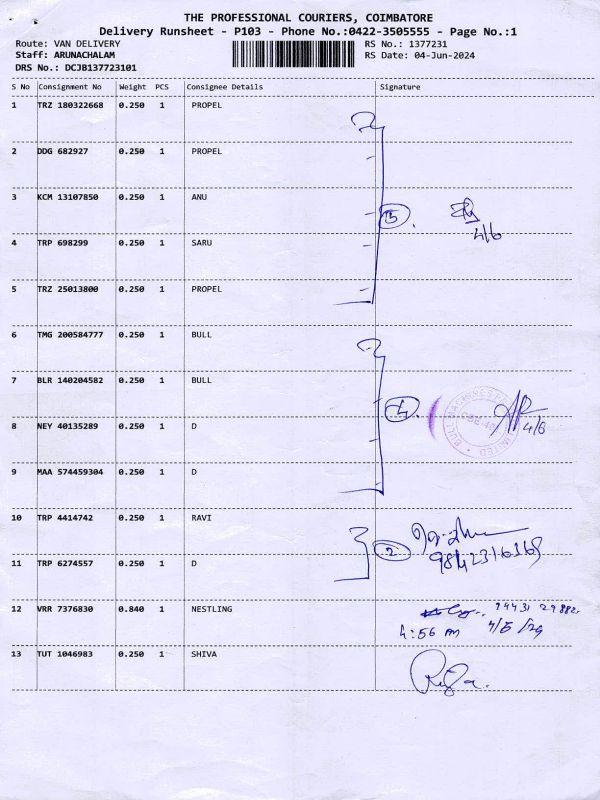 THE PROFESSIONAL COURIERS, COIMBATORE
Delivery Runsheet - P103 - Phone No.:0422-3505555 - Page No.:1
Route: VAN DELIVERY RS No.: 1377231
Staff: ARUNACHALAM RS Date: 04-Jun-2024
DRS No.: DCJB137723101
S No Consignment No Weight PCS Consignee Details Signature
1 TRZ 180322668 0.250 1 PROPEL
2 DDG 682927 0.250 1 PROPEL
3 KCM 13107850 0.250 1 ANU
5
4/6
4 TRP 698299 0.250 1 SARU
5 TRZ 25013800 0.250 1 PROPEL
6 TMG 200584777 0.250 1 BULL
7 BLR 140204582 0.250 1 BULL
4
4/6
8 NEY 40135289 0.250 1 D
9 MAA 574459304 0.250 1 D
10 TRP 4414742 0.250 1 RAVI
2
9842316368
11 TRP 6274557 0.250 1 D
12 VRR 7376830 0.840 1 NESTLING
94431 29882
4:56 PM
13 TUT 1046983 0.250 1 SHIVA